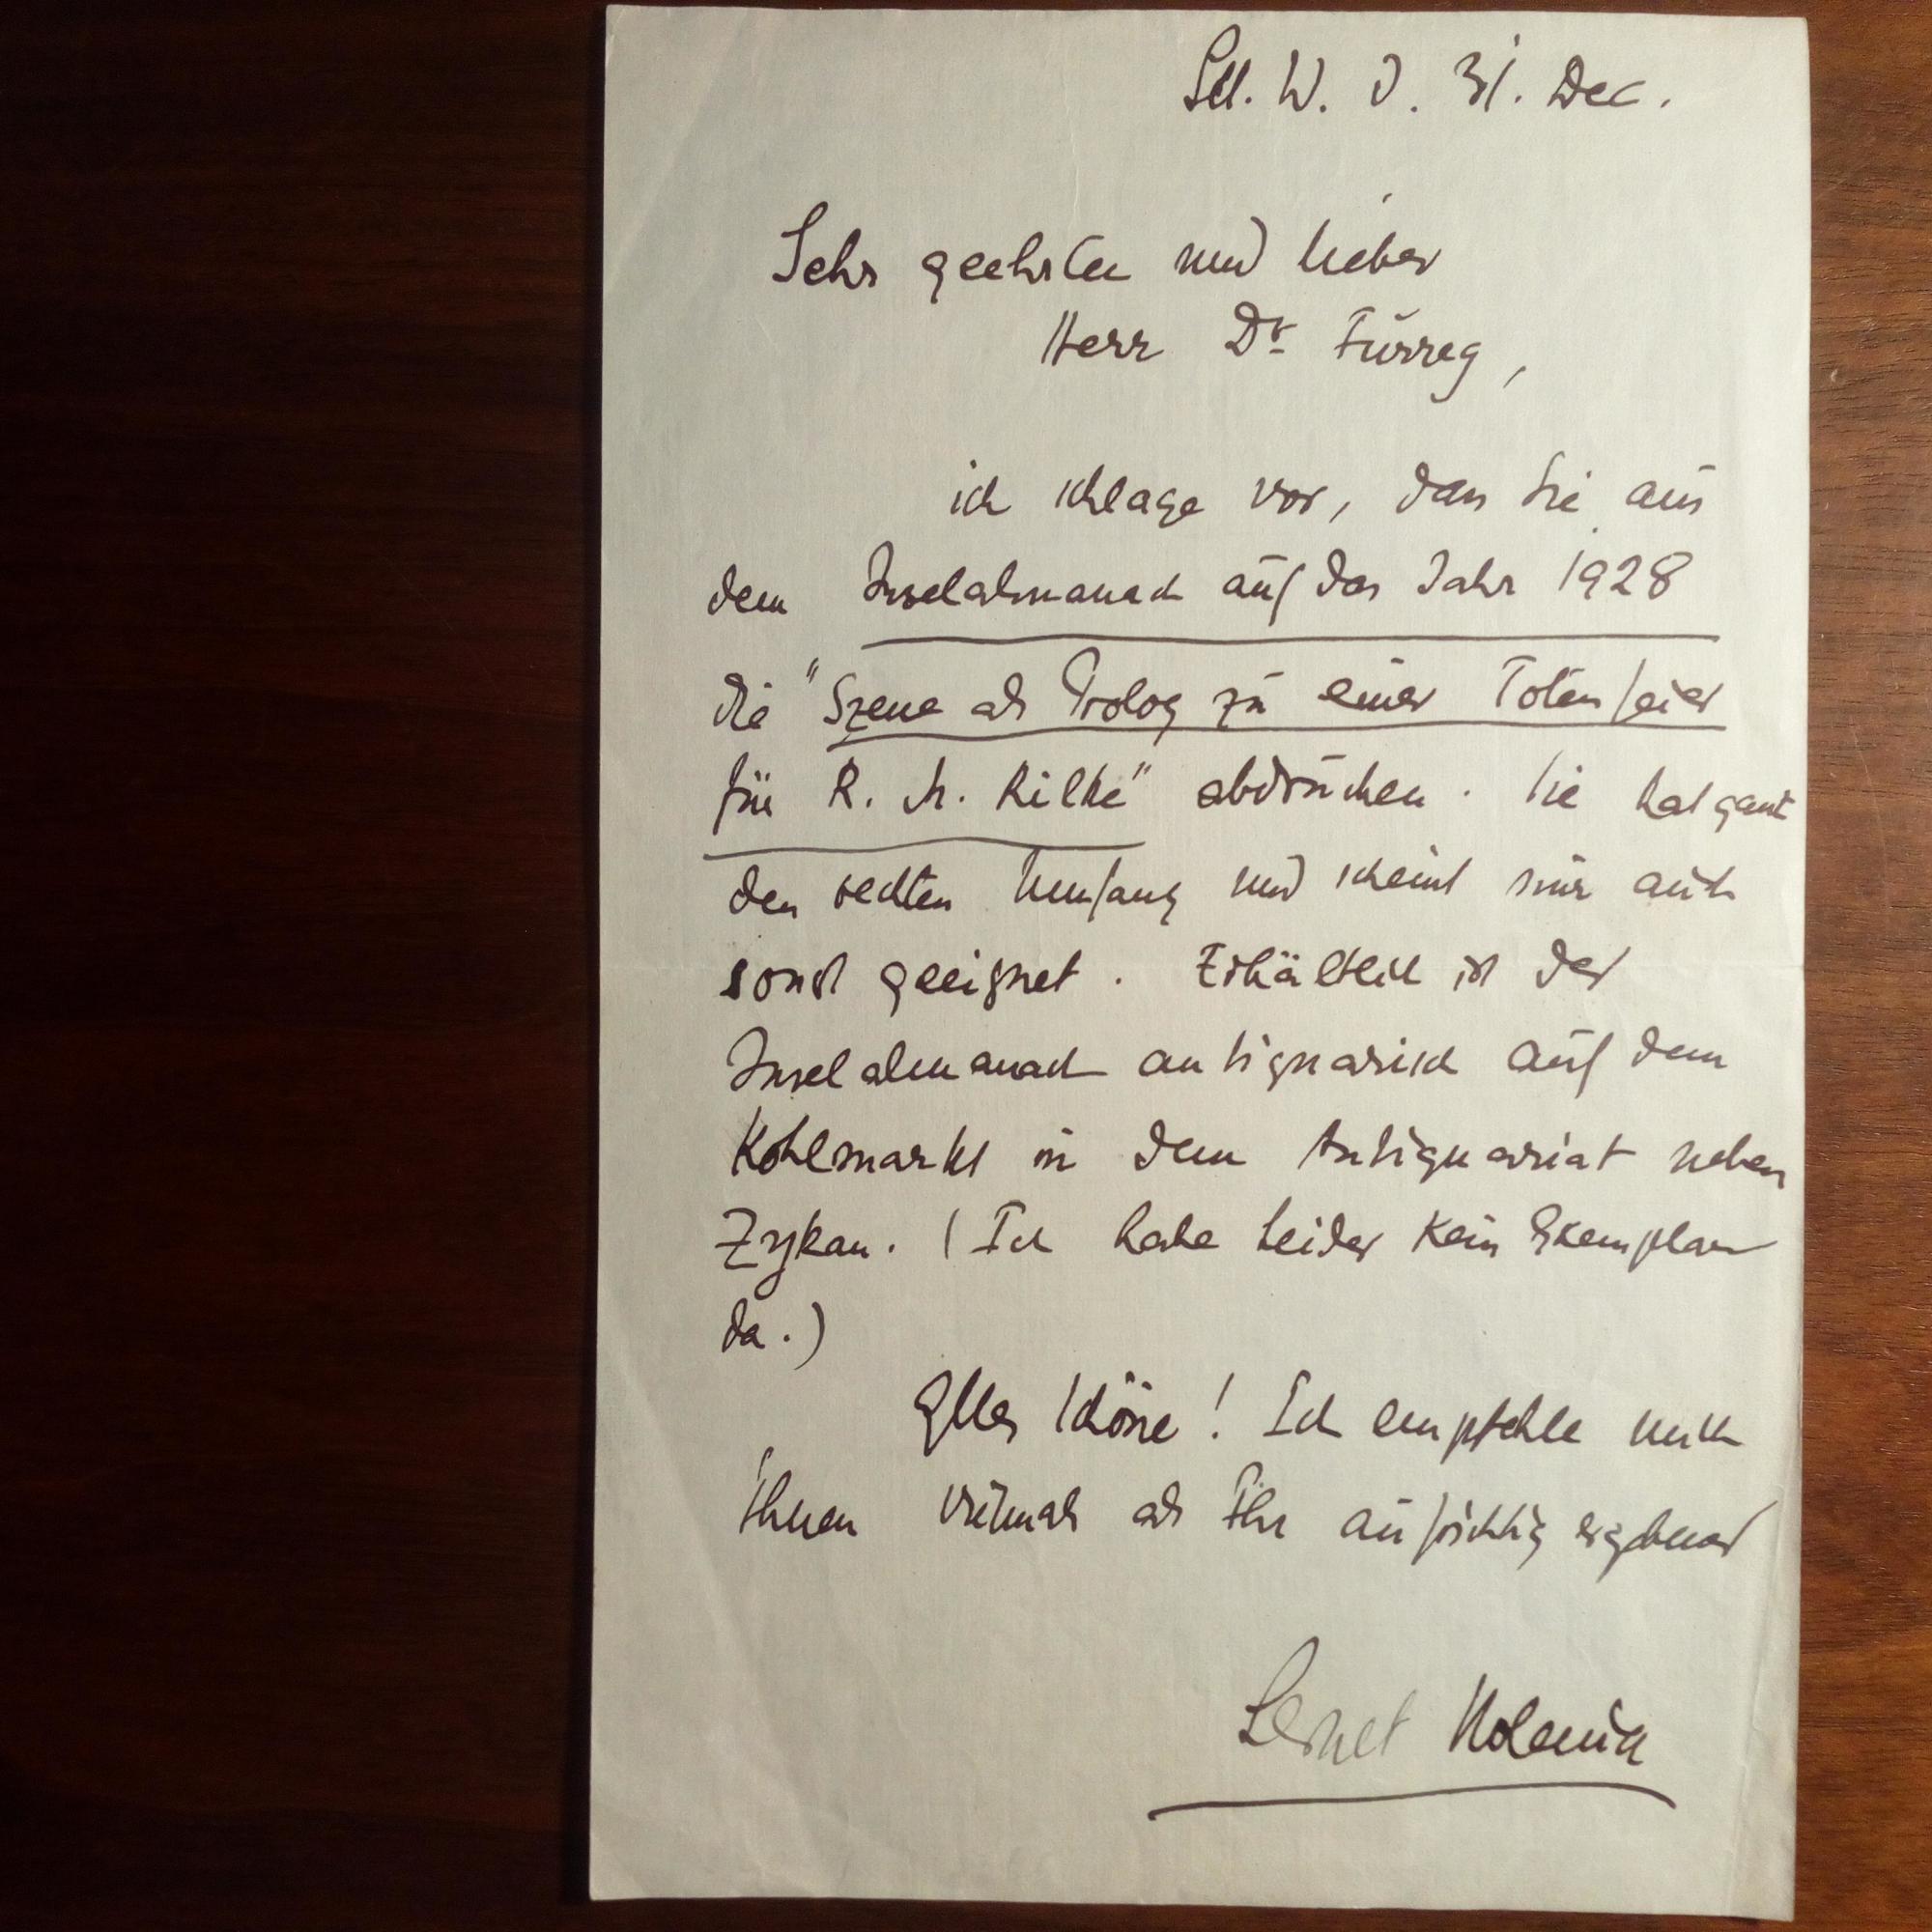 Scl. W. J. 31. Dec.
Sehr geehrter und lieber
Herr Dr Fürreg,
ich schlage vor, dass Sie aus
dem Inselalmanach auf das Jahr 1928
die "Szene als Prolog zu einer Totenfeier
für R. M. Rilke" abdrucken. Sie hat ganz
den rechten Umfang und scheint mir auch
sonst geeignet. Erhältlich ist der
Inselalmanach antiquarisch auf dem
Kohlmarkt in dem Antiquariat neben
Zykan. (Ich habe leider kein Exemplar
da.)
Alles Schöne! Ich empfehle mich
Ihnen vielmals als Ihr aufrichtig ergebener
Lernet Holenia